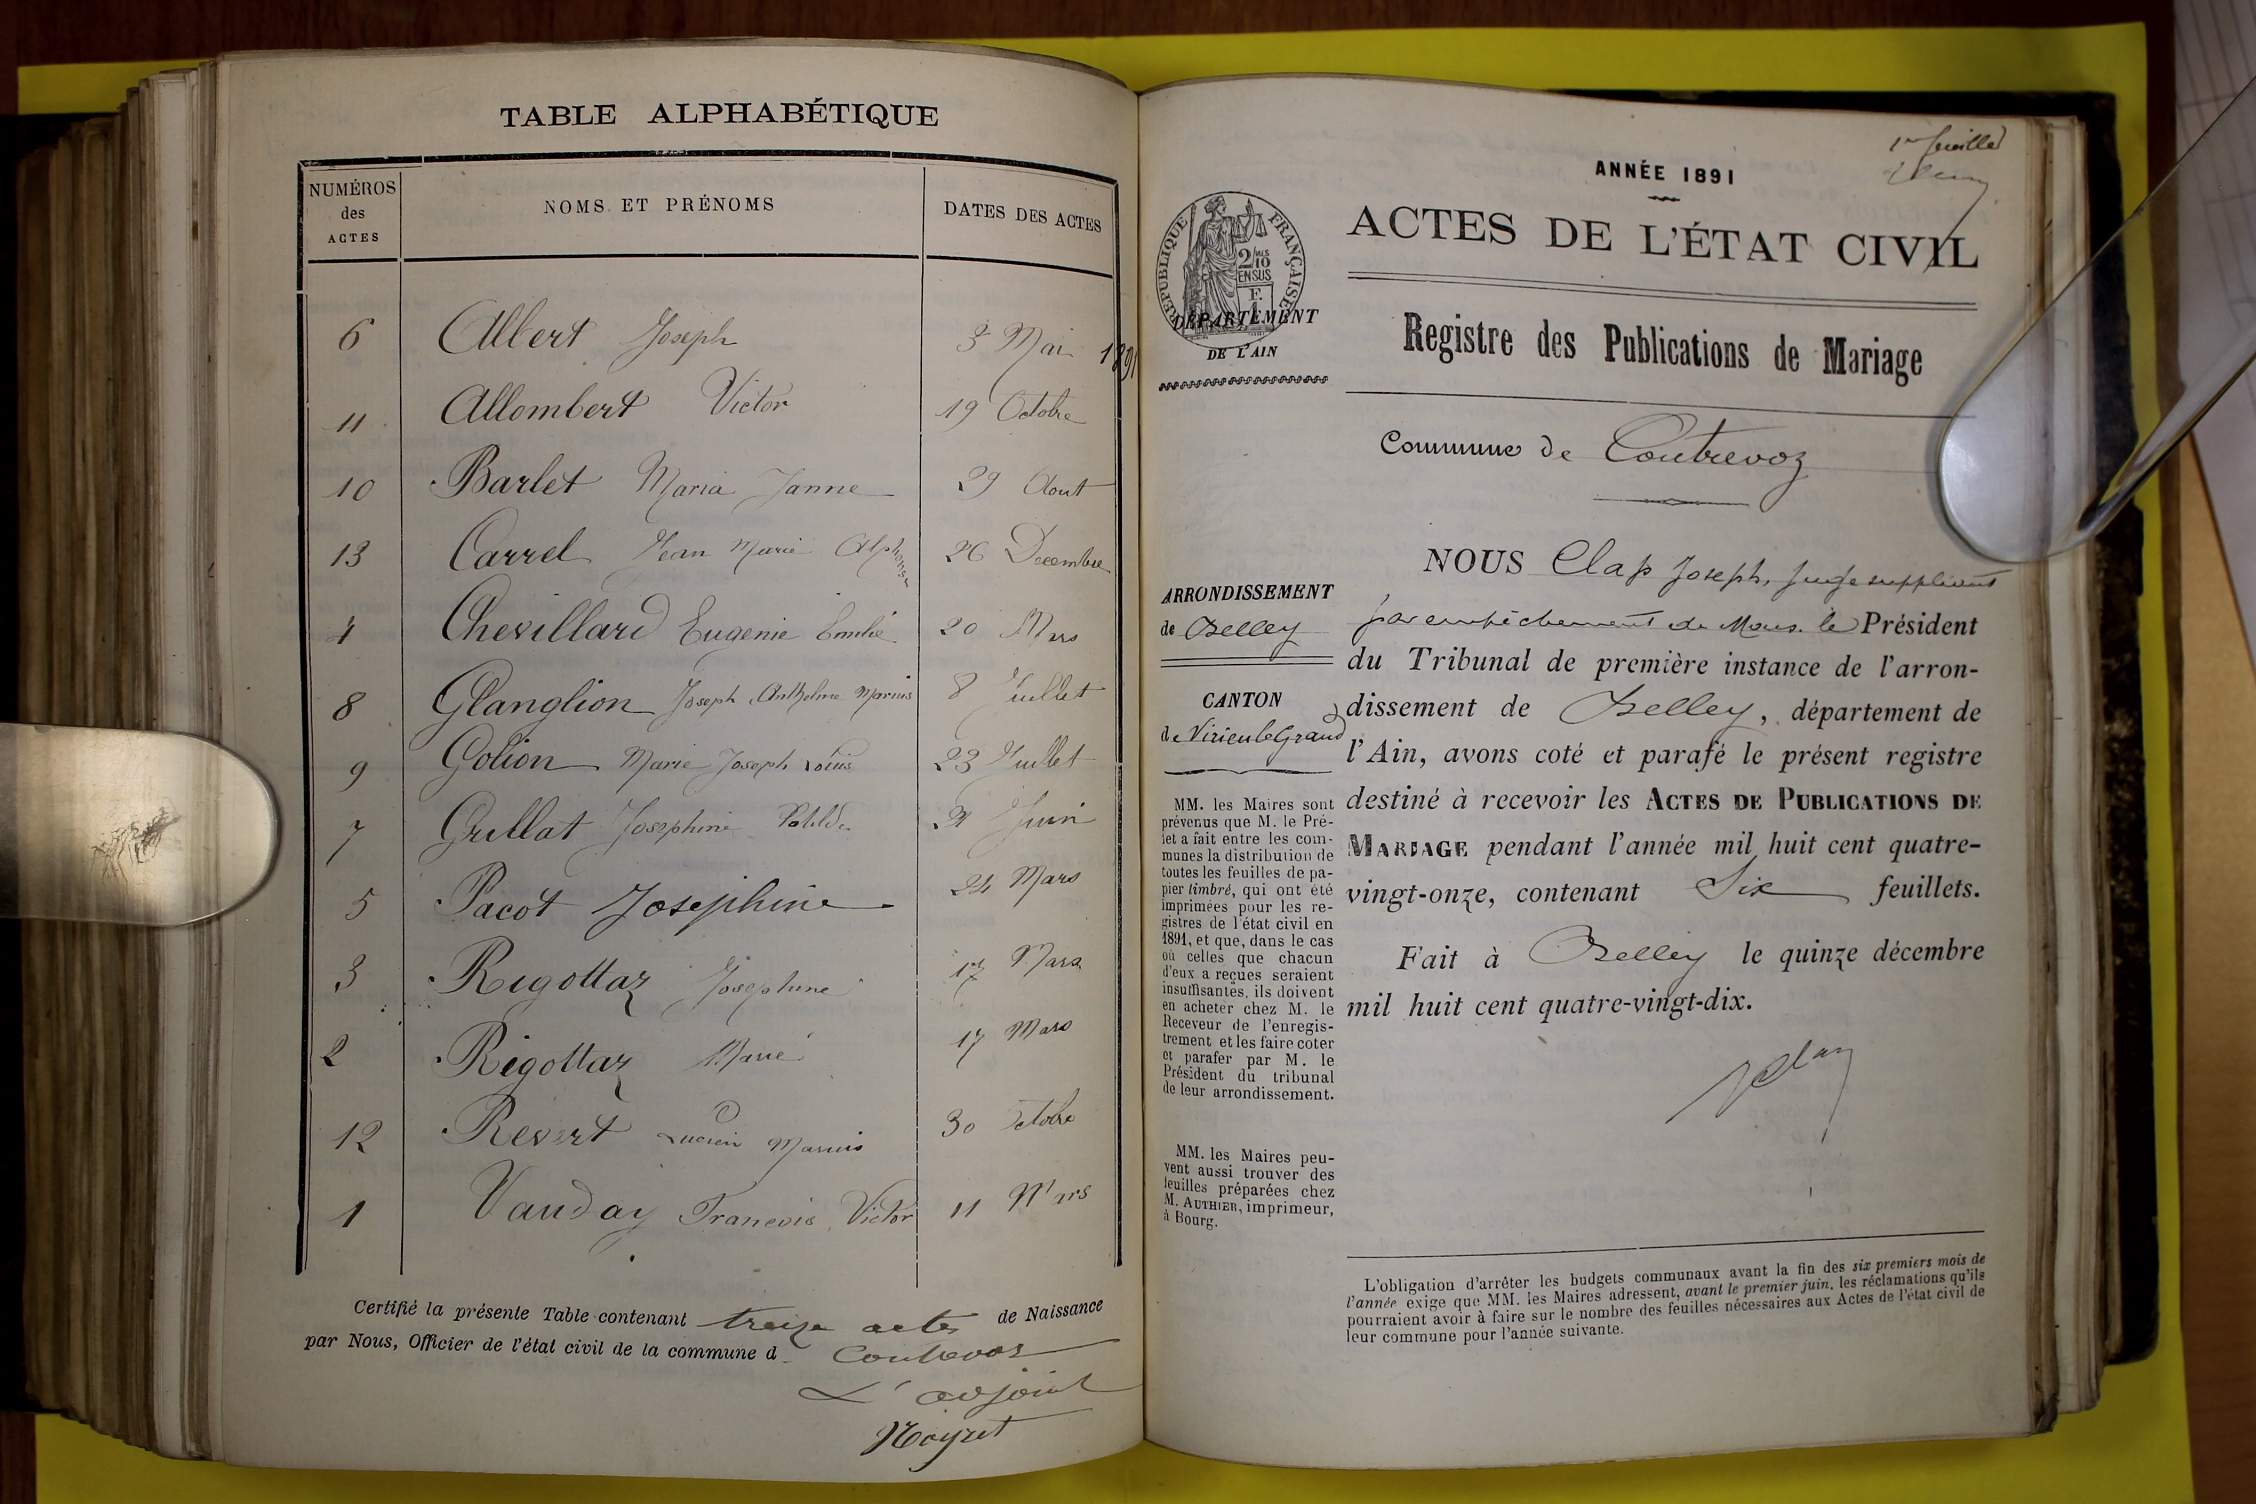 TABLE ALPHABÉTIQUE
NUMÉROS des ACTES
NOMS ET PRÉNOMS
DATES DES ACTES
6 Albert Joseph 3 Mai 1891
11 Allombert Victor 19 Octobre
10 Barlet Maria Janne 29 Aout
13 Carrel Jean Marie Alphonse 26 Decembre
4 Chevillard Eugenie Emilie 20 Mars
8 Glanglion Joseph Anthelme Marius 8 Juillet
9 Golion Marie Joseph Louis 23 Juillet
7 Grillat Josephine Juin
5 Pacot Josephine 24 Mars
3 Rigottaz Josephine 17 Mars
2 Rigottaz Marie 17 Mars
12 Revert Lucien Marius 30 Octobre
1 Vauday Francois Victor 11 Mars
Certifié la présente Table contenant treize actes de Naissance
par Nous, Officier de l'état civil de la commune d Contrevoz
L'adjoint
Noyret
1er feuillet
ANNÉE 1891
ACTES DE L'ÉTAT CIVIL
RÉPUBLIQUE FRANÇAISE
2/10 EN SUS
DÉPARTEMENT
DE L'AIN
Registre des Publications de Mariage
Commune de Contrevoz
ARRONDISSEMENT
de Belley
CANTON
de Virieu le Grand
MM. les Maires sont
prévenus que M. le Pré-
fet a fait entre les com-
munes la distribution de
toutes les feuilles de pa-
pier timbré, qui ont été
imprimées pour les re-
gistres de l'état civil en
1891, et que, dans le cas
où celles que chacun
d'eux a reçues seraient
insuffisantes, ils doivent
en acheter chez M. le
Receveur de l'enregis-
trement et les faire coter
et parafer par M. le
Président du tribunal
de leur arrondissement.
MM. les Maires peu-
vent aussi trouver des
feuilles préparées chez
M. AUTHIER, imprimeur,
à Bourg.
NOUS Clap Joseph, Juge suppléant
par empêchement de Mons. le Président
du Tribunal de première instance de l'arron-
dissement de Belley, département de
l'Ain, avons coté et parafé le présent registre
destiné à recevoir les ACTES DE PUBLICATIONS DE
MARIAGE pendant l'année mil huit cent quatre-
vingt-onze, contenant Six feuillets.
Fait à Belley le quinze décembre
mil huit cent quatre-vingt-dix.
L'obligation d'arrêter les budgets communaux avant la fin des six premiers mois de
l'année exige que MM. les Maires adressent, avant le premier juin, les réclamations qu'ils
pourraient avoir à faire sur le nombre des feuilles nécessaires aux Actes de l'état civil de
leur commune pour l'année suivante.